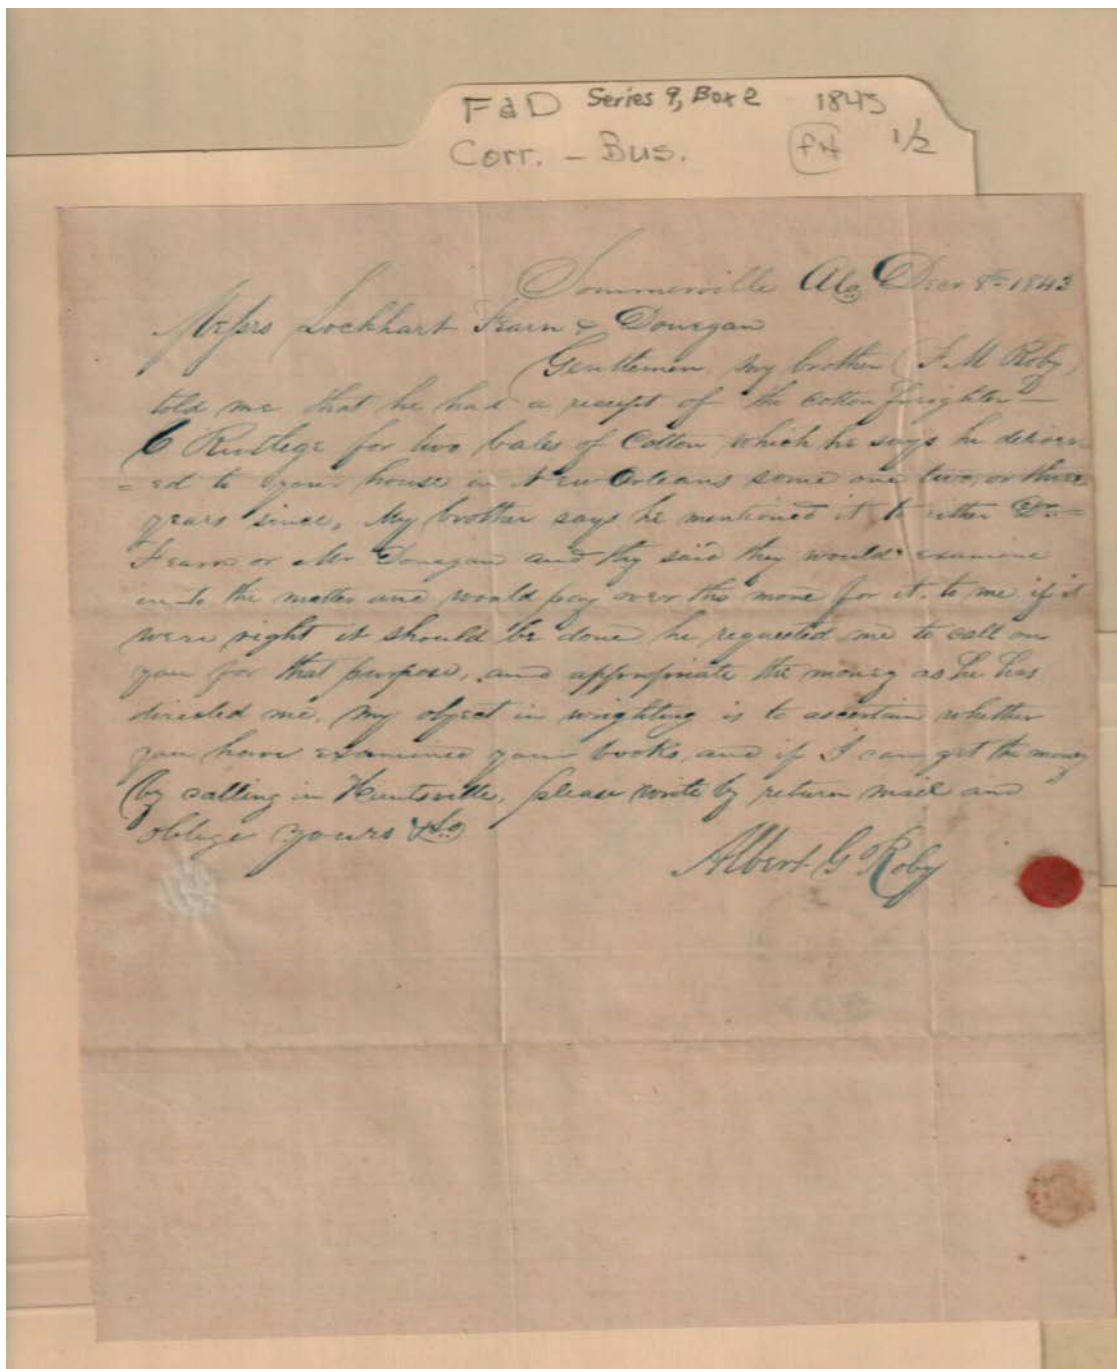 F & D Series 9, Box 2 1843
Corr. - Bus. FH 1/2
Sommerville Ala Decr 8th 1843
Messrs Lockhart Fearn & Donegan
Gentlemen, my brother (F. M Roby)
told me that he had a receipt of the cotton freighter
C Rutlege for two bales of Cotton which he says he deliver
=ed to your house in New Orleans some one two, or three
years since, My brother says he mentioned it to either Dr=
Fearn or Mr Donegan and they said they would examine
in-to the matter and would pay over the mone for it, to me if it
were right it should be done, he requested me to call on
you for that purpose, and appropriate the money as he has
directed me, My object in wrighting is to ascertain whether
you have examined your books, and if I can get the money
by calling in Huntsville, please write by return mail and
oblige yours &c
Albert G Roby